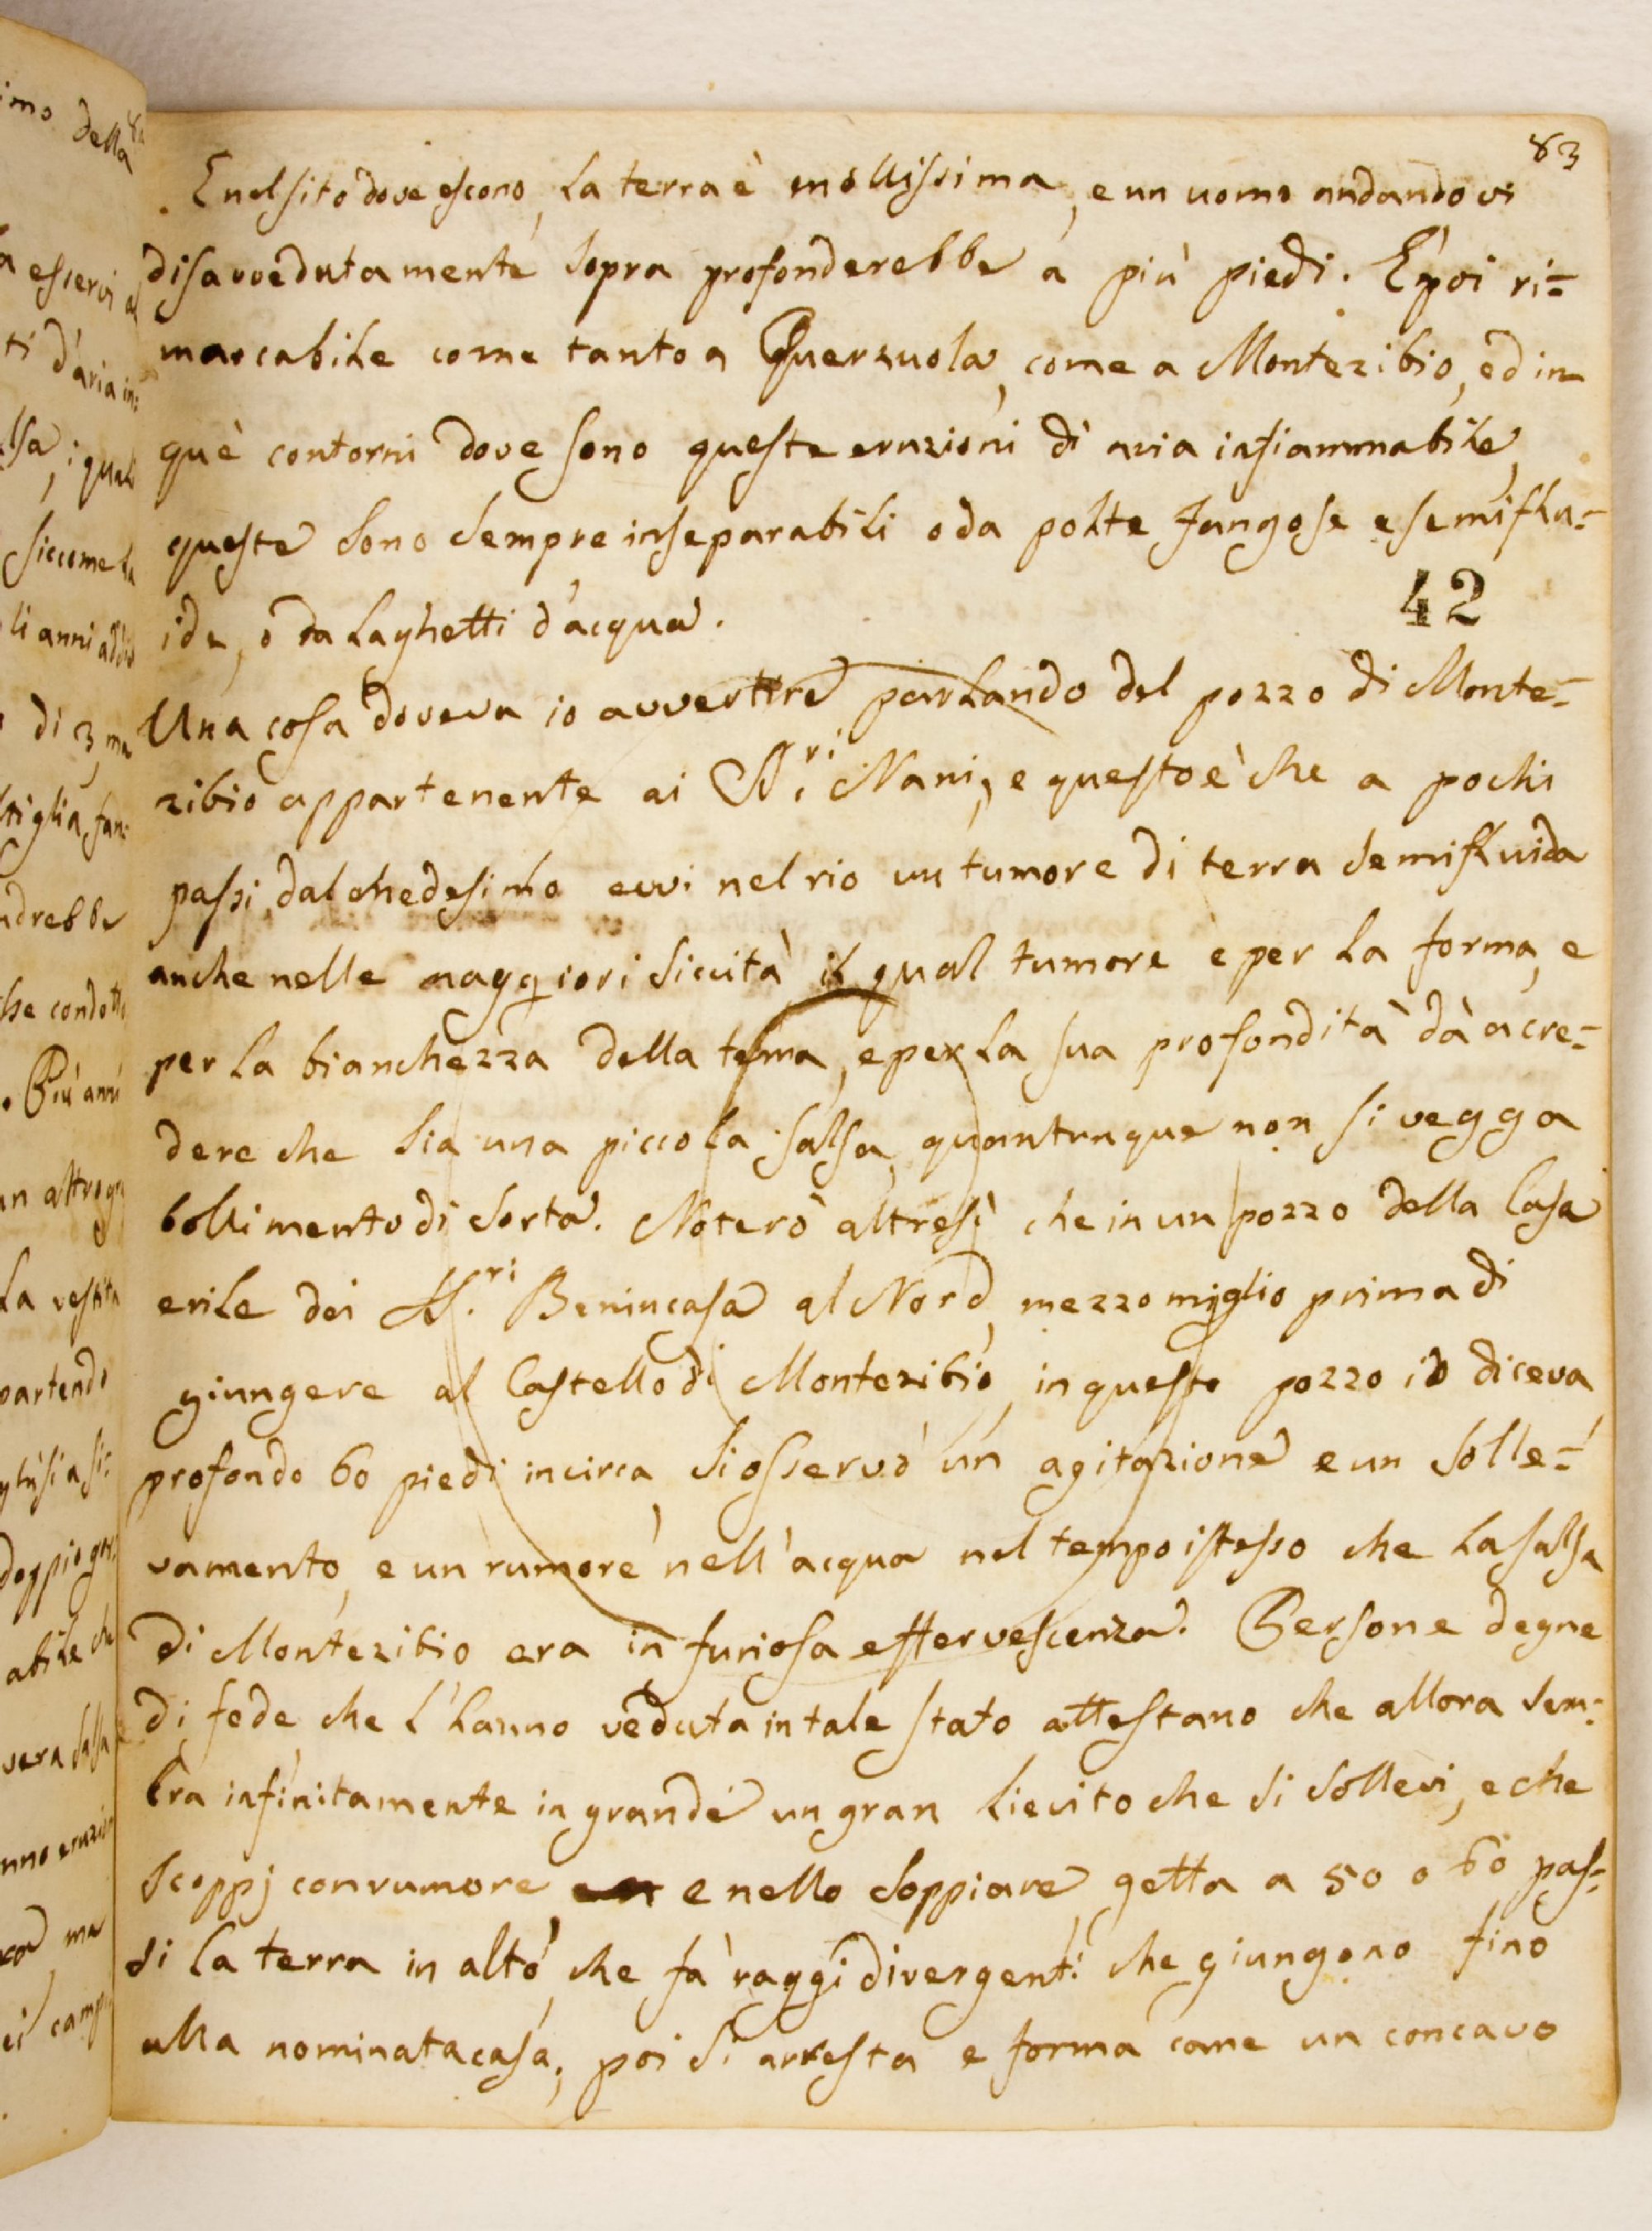 83
E nel sito dove escono, la terra è mollissima, e un uomo andandovi
disavvedutamente sopra profonderebbe a più piedi. È poi ri=
marcabile come tanto a Querzuola, come a Montezibio, ed in
què contorni dove sono queste eruzioni di aria infiammabile,
queste sono sempre inseparabili o da polte fangose e semiflu=
ide, o da laghetti d'acqua.
42
Una cosa doveva io avvertire parlando del pozzo di Monte=
zibio appartenente ai SS.ri Nani, e questo è che a pochi
passi dal medesimo evvi nel rio un tumore di terra semifluida
anche nelle maggiori siccità il qual tumore e per la forma, e
per la bianchezza della tema, e per la sua profondità dà a cre=
dere che sia una piccola salsa, quantunque non si vegga
bollimento di sorta. Noterò altresì che in un pozzo della Casa
erile dei SS.ri Benincasa al Nord, mezzo miglio prima di
giungere al Castello di Montezibio, in questo pozzo io diceva
profondo 60 piedi incirca, si osservò un agitazione e un solle=
vamento, e un rumore nell'acqua nel tempo istesso che la salsa
di Montezibio era in furiosa effervescenza. Persone degne
di fede, che l'hanno veduta in tale stato attestano che allora sem=
bra infinitamente in grande un gran lievito che si sollevi, e che
scoppj con rumore, e nello soppiare, getta a 50 o 60 pas=
si la terra in alto, che fà raggi divergenti che giungono fino
alla nominata casa, poi si arresta e forma come un concavo
imo della
esservi
ti d'aria in=
lsa, i quali
siccome la
li anni addie
di 3
stiglia, fan=
ndrebbe
che condotti
. Più anni
un altro
la vestita
partendo
doppio
abile che
vera salsa
nno eruzion
ma
ei camp